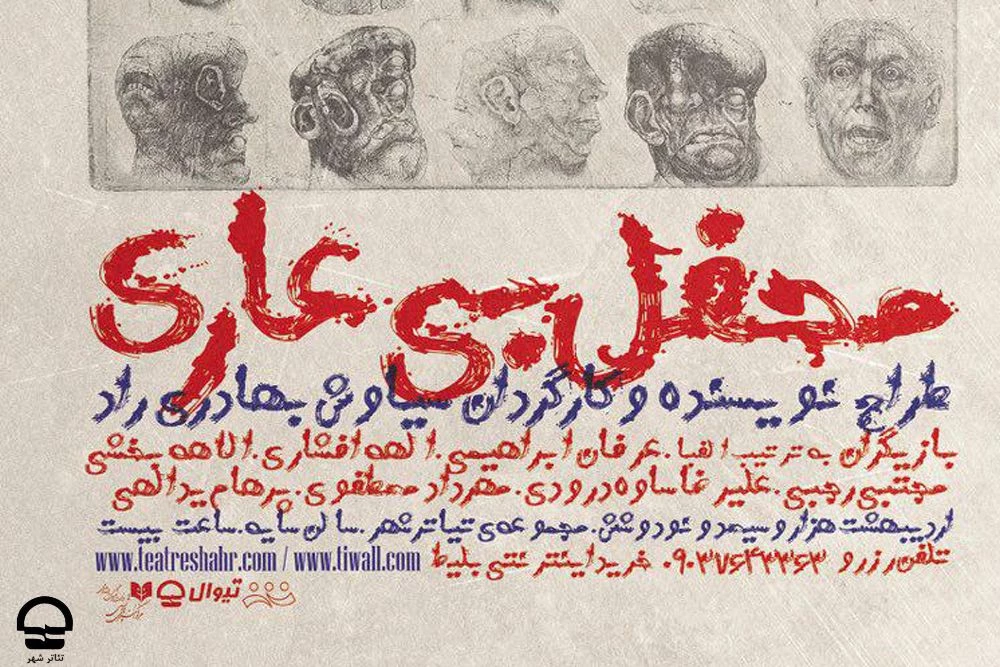 محفل بی عاری
طراح نویسنده و کارگردان سیاوش بهادری راد
بازیگران به ترتیب الفبا. عرفان ابراهیمی. الهه افشاری. الاهه بخشی
مجتبی رجبی. علیرضا ساوه درودی. مهرداد مصطفوی. پرهام یدالهی
اردیبهشت هزار و سیصد و نود و شش. مجموعه‌ی تیاتر شهر. سالن سایه. ساعت بیست
تلفن رزرو ۰۹۰۳۷۶۴۳۳۶۳ خرید اینترنتی بلیط www.teatreshahr.com / www.tiwall.com
تیوال
تئاتر شهر